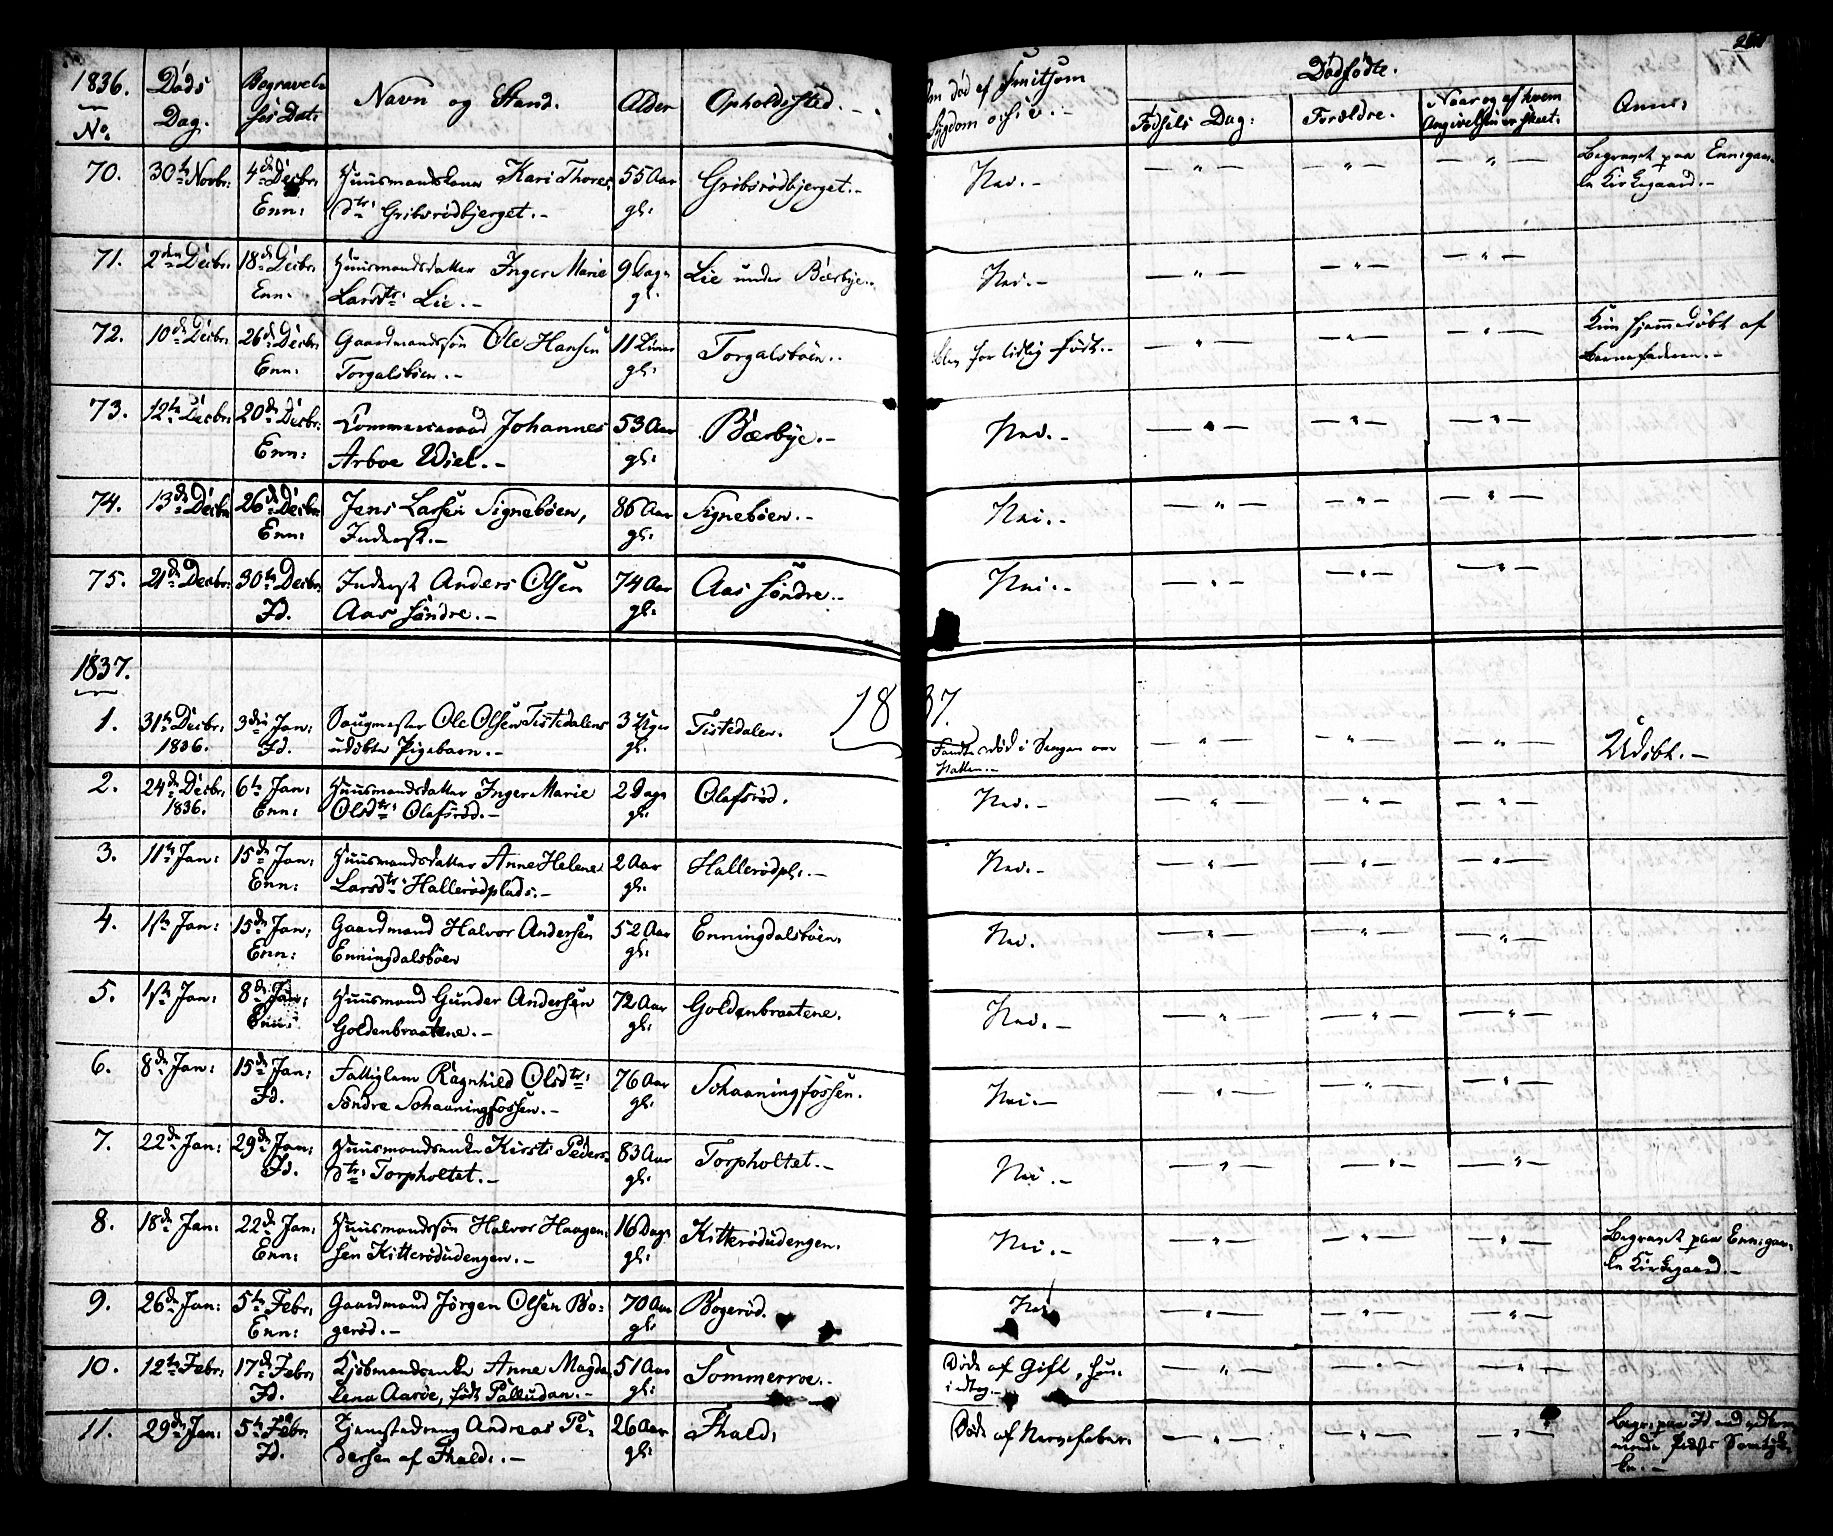 1836.
No:
Døds
Dag.
Begravel-
ses Dat:
Navn og Stand.
Alder
Opholdssted.-
Om død af Smitsom
Sygdom o: s: v:-
Dødfødte.
Fødsels Dag:
Forældre.
Naar og af hvem
Angivelsen er skeet.
Anm:
70.
30te Novbr:
4de Decbr:
Enn:
Huusmandskone Kari Thores
dtr: Gribsrødbjerget.-
55 Aar
gl:
Gribsrødbjerget.-
Nei.-
Begravet paa Enn:gam-
le Kirkegaard.-
71.
2den Decbr:
18de Decbr:
Enn:
Huusmandsdatter Inger Marie
Larsdtr: Lie.-
9 Dage
gl:
Lie under Bærbye.
Nei.-
72.
10de Decbr:
26de Decbr:
Enn:
Gaardmandssøn Ole Hansen
Torgalsbøen.-
11 Timer
gl:
Torgalsbøen.
Blev for tidlig født.-
Kun hjemmedøbt af
Barnefaderen.-
73.
12te Decbr:
20de Decbr:
Enn:
Commerceraad Johannes
Arboe Wiel.-
53 Aar
gl:
Bærbye.-
Nei.-
74.
13de Decbr
26de Decbr:
Enn:
Jens Larsen Signebøen,
Inderst.-
86 Aar
gl:
Signebøen.-
Nei.-
75.
21de Decbr:
30te Decbr:
Id.
Inderst Anders Olsen
Aas søndre.-
74 Aar
gl:
Aas søndre.-
Nei.-
1837.
1837.
1.
31te Decbr:
1836.
3die Jan:
Id.
Saugmester Ole Olsen Tistedalens
udøbte Pigebarn.-
3 Uger
gl:
Tistedalen.
Fandtes død i Sengen om
Natten.-
Udøbt.-
2.
24de Decbr:
1836.
6te Jan:
Enn:
Huusmandsdatter Inger Marie
Olsdtr: Olafsrød.-
2 Dage
gl:
Olafsrød.
Nei.-
3.
11te Jan:
15de Jan:
Enn:
Huusmandsdatter Anne Helene
Larsdtr: Hallerødplads.-
2 Aar
gl:
Hallerødpl:-
Nei.-
4.
1ste Jan:
15de Jan:
Enn:
Gaardmand Halvor Andersen
Enningdalsbøen
52 Aar
gl:
Enningdalsbøen.
Nei.
5.
1ste Jan:
8de Jan:
Enn:
Huusmand Gunder Andersen
Goldenbraatene.-
72 Aar
gl:
Goldenbraatene.
Nei.-
6.
8de Jan:
15de Jan:
Id.
Fattiglem Ragnhild Olsdtr:
Søndre Schaaningfossen.-
76 Aar
gl:
Schaaningfossen.
Nei.-
7.
22de Jan:
29de Jan:
Id.
Huusmandsenke Kirsti Peders-
dtr: Torpholtet.-
83 Aar
gl:
Torpholtet.-
Nei.-
8.
18de Jan:
22de Jan:
Enn:
Huusmandssøn Halvor Haagen-
sen Kitterødudengen.-
16 Dage
gl:
Kitterødudengen.
Nei.-
Begravet paa Enn:gam-
le Kirkegaard.-
9.
26de Jan:
5te Febr:
Enn:
Gaardmand Jörgen Olsen Bo-
gerød.-
70 Aar
gl:
Bogerød.
Nei
10.
12te Febr:
17de Febr:
Id.
Kjøbmandsenke Anne Magda
lena Aarøe, født Palludan.-
51 Aar
gl:
Sommerroe.-
Døde af Gift, hun
indtog.-
11.
29de Jan:
5te Febr:
Id.
Tjenestedreng Andreas Pe-
dersen af Thald:-
26 Aar
gl:
Thald:
Døde af Nervefeber.